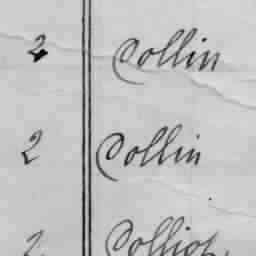 2 Collin
2 Collin
2 Colliot